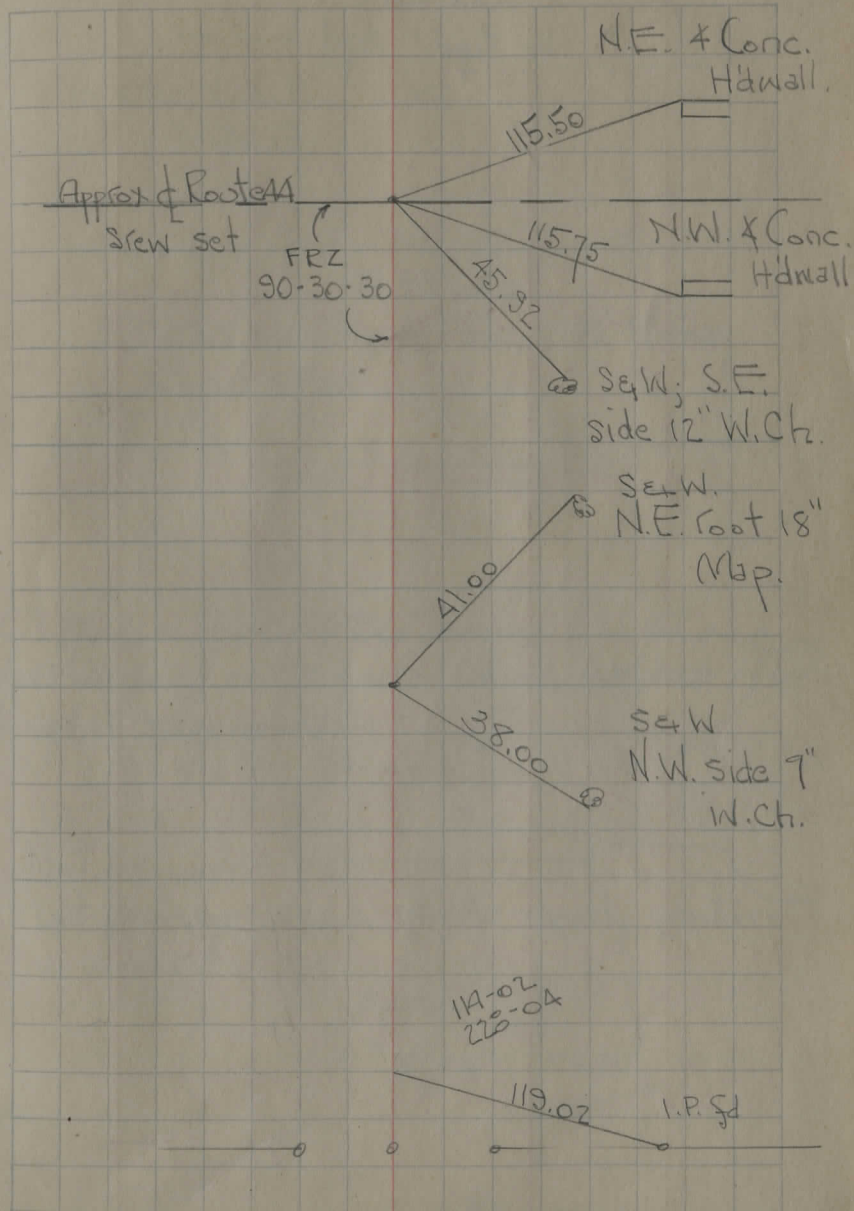 N.E. ∡ Conc.
H'dwall.
115.50
Approx ℄ Route 44
Srew set
FRZ
90-30-30
115.75
N.W. ∡ Conc.
H'dwall
45.92
S&W; S.E.
side 12" W.Ch.
S&W.
N.E. root 18"
Map.
41.00
38.00
S&W
N.W. side 9"
W.Ch.
220-04
119.02
I.P. fd